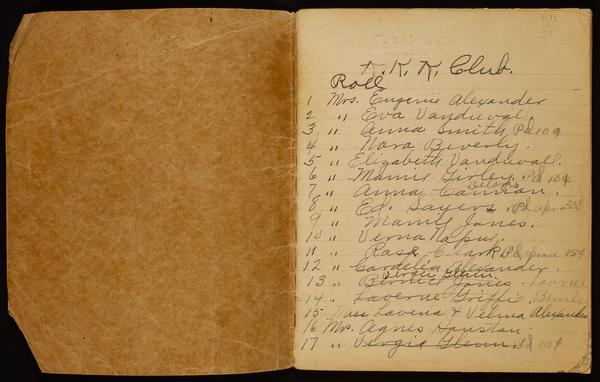 K. K. K. Club.
Roll
1 Mrs. Eugenie Alexander
2 " Eva Vanduval
3 " Anna Smith Pd 10¢
4 " Nora Beverly.
5 " Elizabeth Vanduvall.
6 " Mamie Girley. Pd 10¢
7 " Anna Cannan.
8 " Ed. Sayers. Pd apr
9 " Mamie Jones.
10 " Verna
11 " Rose Clark Pd 15¢
12 " Cordelia Alexander.
Vergie Glenn.
13 " Bernice Jones.
14 " Laverne Griffie.
15 Lavena & Velma Alexander
16 Mrs. Agnes Houston
17 " Vergie Glenn. Pd 10¢